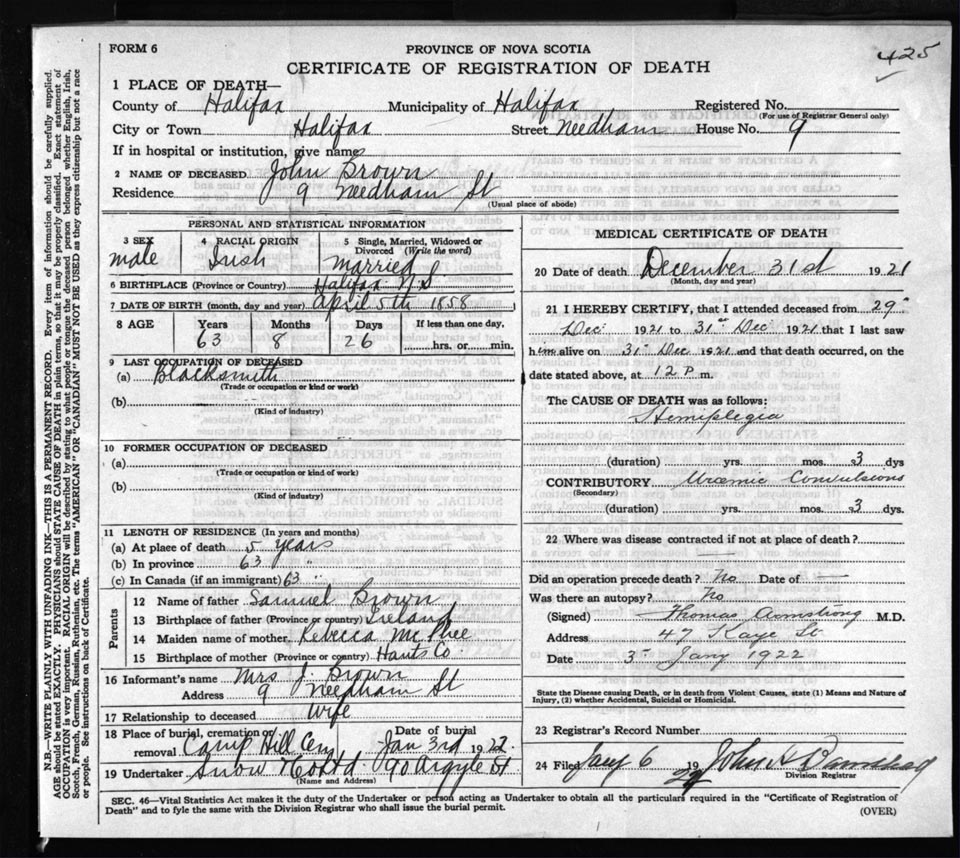 FORM 6
PROVINCE OF NOVA SCOTIA
425
CERTIFICATE OF REGISTRATION OF DEATH
1 PLACE OF DEATH—
County of Halifax Municipality of Halifax Registered No.
(For use of Registrar General only)
City or Town Halifax Street Needham House No. 9
If in hospital or institution, give name
2 NAME OF DECEASED John Brown
Residence 9 Needham St
(Usual place of abode)
PERSONAL AND STATISTICAL INFORMATION
3 SEX 4 RACIAL ORIGIN 5 Single, Married, Widowed or
Divorced (Write the word)
male Irish married
6 BIRTHPLACE (Province or Country) Halifax N.S
7 DATE OF BIRTH (month, day and year) April 5th 1858
8 AGE Years Months Days If less than one day.
63 8 26 hrs. or min.
9 LAST OCCUPATION OF DECEASED
(a) Blacksmith
(Trade or occupation or kind or work)
(b)
(Kind of industry)
10 FORMER OCCUPATION OF DECEASED
(a)
(Trade or occupation or kind of work)
(b)
(Kind of industry)
11 LENGTH OF RESIDENCE (In years and months)
(a) At place of death 5 years
(b) In province 63 "
(c) In Canada (if an immigrant) 63 "
Parents
12 Name of father Samuel Brown
13 Birthplace of father (Province or country) Ireland
14 Maiden name of mother Rebecca McPhee
15 Birthplace of mother (Province or country) Hants Co.
16 Informant's name Mrs J. Brown
Address 9 Needham St
17 Relationship to deceased Wife
18 Place of burial, cremation or Date of burial
removal Camp Hill Cem Jan 3rd 1922
19 Undertaker Snow & Co Ltd 90 Argyle St
(Name and Address)
MEDICAL CERTIFICATE OF DEATH
20 Date of death December 31st 1921
(Month, day and year)
21 I HEREBY CERTIFY, that I attended deceased from 29th
Dec. 1921 to 31st Dec. 1921 that I last saw
him alive on 31st Dec 1921 and that death occurred, on the
date stated above, at 12 P m.
The CAUSE OF DEATH was as follows:
Hemiplegia
(duration) yrs. mos. 3 dys
CONTRIBUTORY Uraemic Convulsions
(Secondary)
(duration) yrs. mos. 3 dys.
22 Where was disease contracted if not at place of death?
Did an operation precede death? No Date of —
Was there an autopsy? No
(Signed) Thomas Armstrong M.D.
Address 47 Kaye St
Date 3rd Jany 1922
State the Disease causing Death, or in death from Violent Causes, state (1) Means and Nature of
Injury, (2) whether Accidental, Suicidal or Homicidal.
23 Registrar's Record Number
24 Filed Jany 6 1922 John
Division Registrar
SEC. 46—Vital Statistics Act makes it the duty of the Undertaker or person acting as Undertaker to obtain all the particulars required in the "Certificate of Registration of
Death" and to fyle the same with the Division Registrar who shall issue the burial permit.
(OVER)
N.B.—WRITE PLAINLY WITH UNFADING INK—THIS IS A PERMANENT RECORD. Every item of information should be carefully supplied.
AGE should be stated EXACTLY. PHYSICIANS should STATE CAUSE OF DEATH in plain terms, so that it may be properly classified. Exact statement of
OCCUPATION is very important. RACIAL ORIGIN will be described by stating to what people or tongue the deceased person belonged whether English, Irish,
Scotch, French, German, Russian, Ruthenian, etc. The terms "AMERICAN" OR "CANADIAN" MUST NOT BE USED as they express citizenship but not a race
or people. See instructions on back of Certificate.